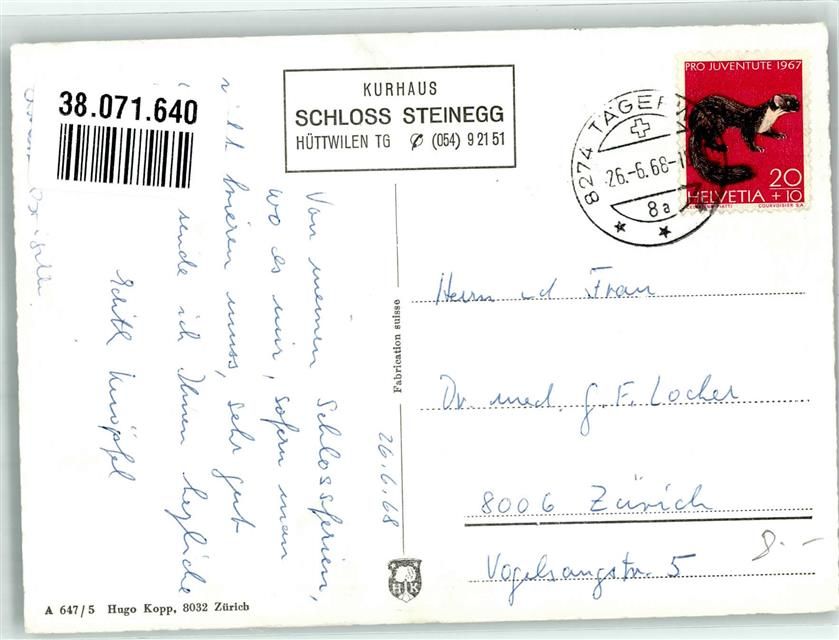 38.071.640
KURHAUS
SCHLOSS STEINEGG
HÜTTWILEN TG ✆ (054) 9 21 51
8274 TÄGER
26.-6.68-1
8a
PRO JUVENTUTE 1967
20
HELVETIA + 10
COURVOISIER S.A.
26.6.68
Von meinen Schlossferien,
wo es mir, sofern man
nicht frieren muss, sehr gut
sende ich Ihnen herzliche
Edith Knöpfel
Fabrication suisse
Herrn ud Frau
Dr. med. G. F. Locher
8006 Zürich
Vogelsangstr. 5
8.-
HK
A 647/5 Hugo Kopp, 8032 Zürich